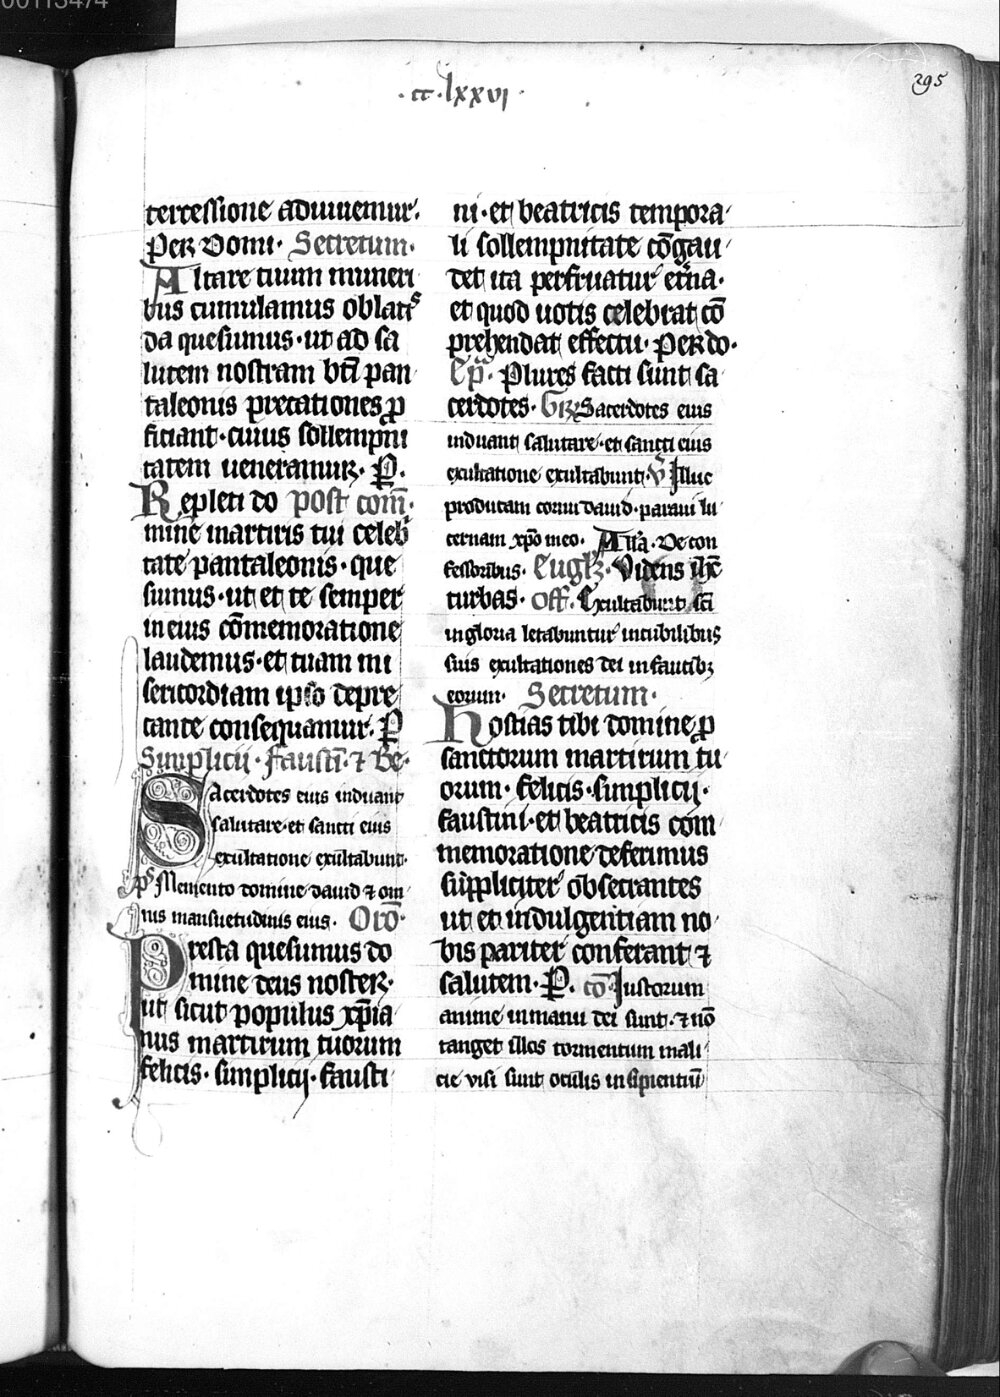 00113474
295
·cc·lxxvi·
tercessione adiuuemur.
Per Domi· Secretum·
Altare tuum muneri
bus cumulamus oblatꝭ
da quesumus·ut ad sa
lutem nostram bti̅ pan
taleonis precationes ꝓ
ficiant·cuius sollempni
tatem ueneramur. P.
Repleti do post com̅.
mine martiris tui celeb̾
tate pantaleonis· que
sumus·ut et te semper
in eius co̅memoratione
laudemus·et tuam mi
sericordiam ipso depre
cante consequamur. P
Simplicii· faustı̅·⁊ Be·
Sacerdotes eius induant
salutare·et sancti eius
exultatione exultabunt·
ps Memento domine dauid ⁊ om
nis mansuetudinis eius. Oro̅·
Presta quesumus do
mine deus noster·
ut sicut populus xp̅ia
nus martirum tuorum
felicis· simplicij· fausti
ni·et beatricis tempora
li sollempnitate co̅gau
det ita perfruatur et̾na·
et quod uotis celebrat co̅
prehendat effectu· Per do·
Ep̅a· Plures facti sunt sa
cerdotes· Gr̅ Sacerdotes eius
induant salutare·et sancti eius
exultatione exultabunt· V̅ Illuc
producam cornu dauid·paraui lu
cernam xp̅o meo. Alla̅· De con
fessoribus. Eugl̅· Videns ihc̅
turbas. Off. Exultabunt sc̅i
in gloria letabuntur in cubilibus
suis exultationes dei in faucibꝫ
eorum· Secretum·
Hostias tibi domine ꝓ
sanctorum martirum tu
orum· felicis·simplicij·
faustini·et beatricis com
memoratione deferimus
suppliciter obsecrantes
ut et indulgentiam no
bis pariter conferant ⁊
salutem· P. co̅ Iustorum
anime in manu dei sunt·⁊ no̅
tanget illos tormentum mali
cie visi sunt oculis insipientiu̅